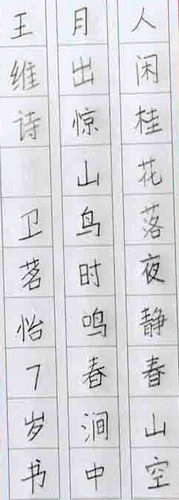 人闲桂花落夜静春山空
月出惊山鸟时鸣春涧中
王维诗 卫茗怡7岁书